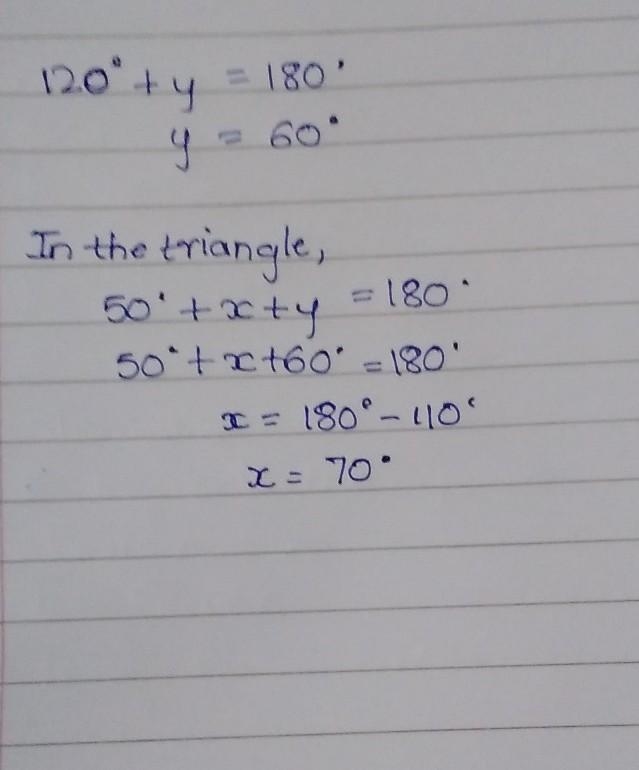 120° + y = 180°
y = 60°
In the triangle,
50° + x + y = 180°
50° + x + 60° = 180°
x = 180° - 110°
x = 70°